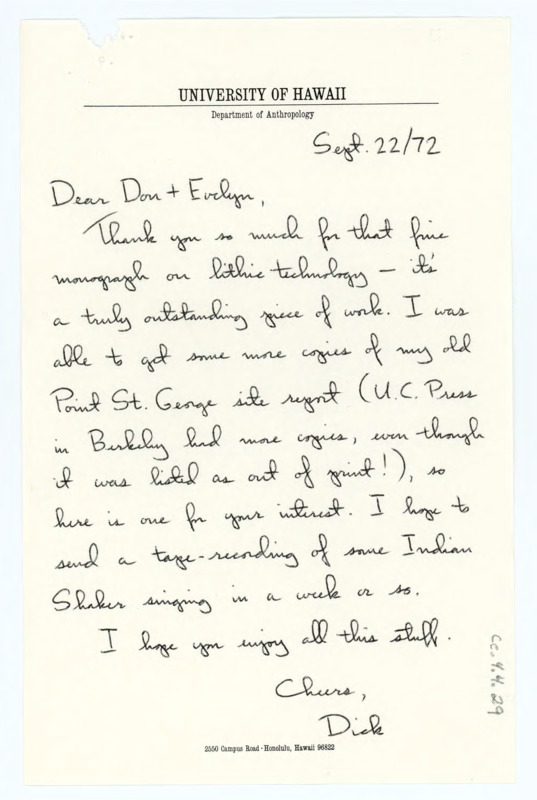 UNIVERSITY OF HAWAII
Department of Anthropology
Sept. 22/72
Dear Don + Evelyn,
Thank you so much for that fine
monograph on lithic technology – it's
a truly outstanding piece of work. I was
able to get some more copies of my old
Point St. George site report (U.C. Press
in Berkeley had more copies, even though
it was listed as out of print!), so
here is one for your interest. I hope to
send a tape-recording of some Indian
Shaker singing in a week or so.
I hope you enjoy all this stuff.
Cheers,
Dick
2550 Campus Road · Honolulu, Hawaii 96822
Cc.4.4.29